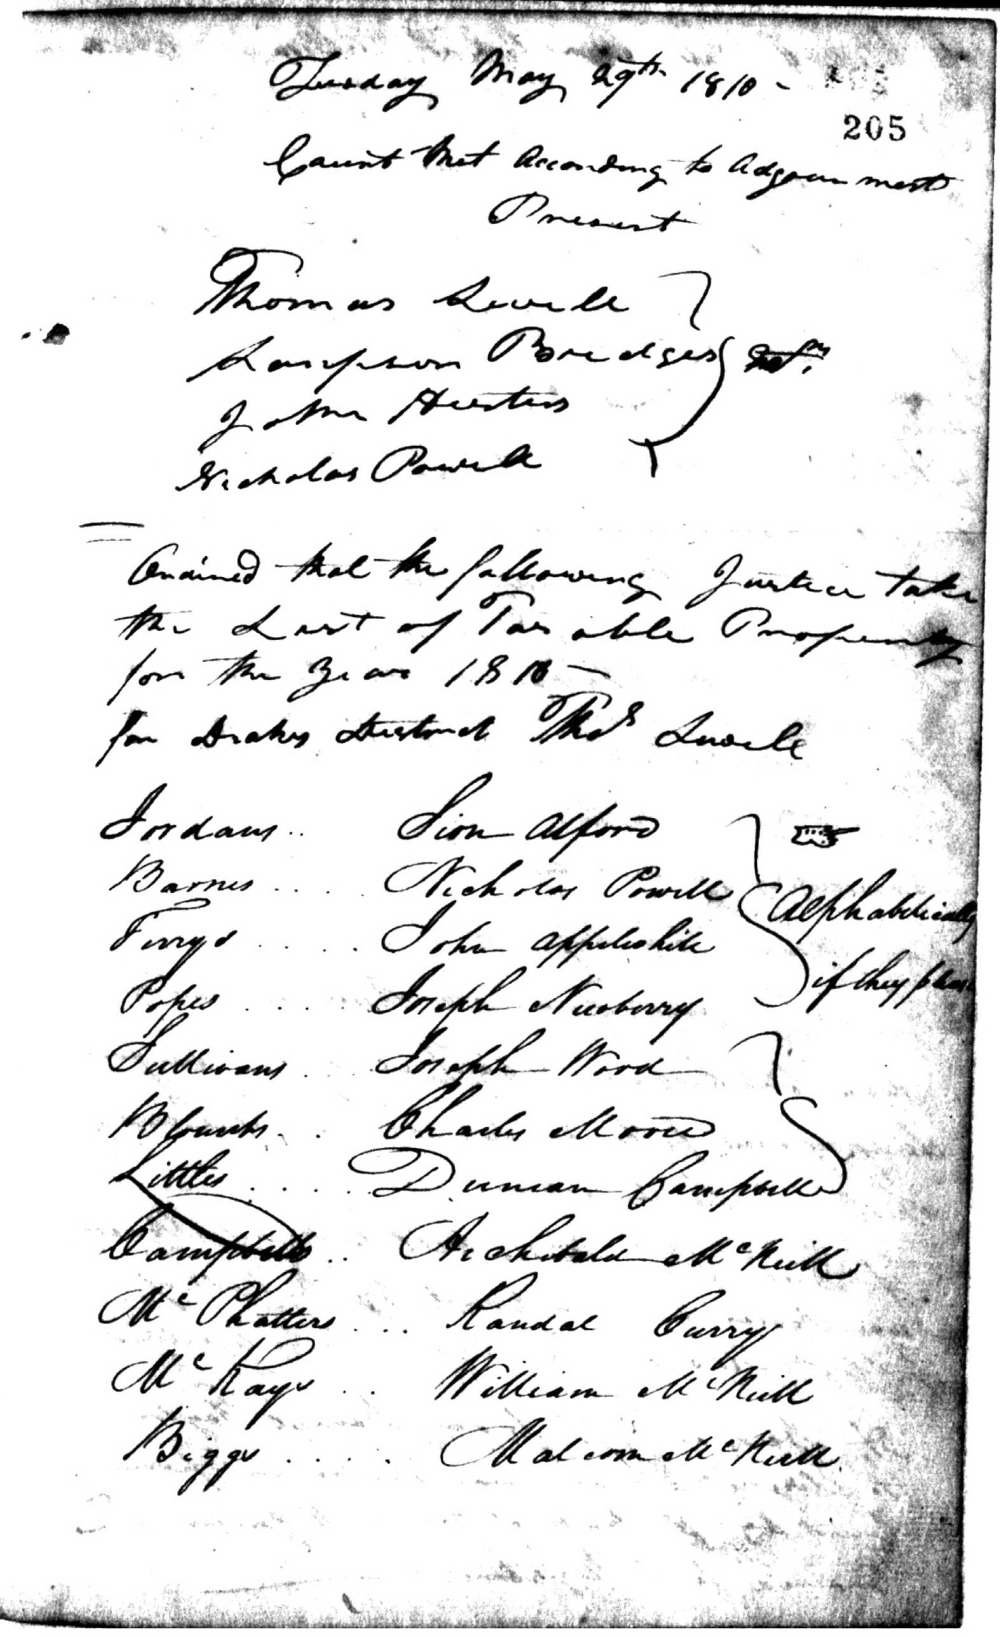 Tuesday May 29th 1810 -
205
Court Met According to Adjournment
Present
Thomas Lovell
Sampson Bridges
John Hunter
Nicholas Powell
Ordained that the following Justice take
the List of Taxable Property
for the Year 1810 -
for Drakes District Thos Lovell
Jordans .. Sion Alford
Barnes .... Nicholas Powell
Terrys .... John Applewhite
Popes .... Joseph Newberry
Sullivans Joseph Wood
Blounts .. Charles Moore
Littles .... Duncan Campbell
Campbells .. Archibald McNeill
McPhatters ... Randal Curry
McKays .. William McNeill
Biggs .... Malcom McNeill
Alphabetically
if they please